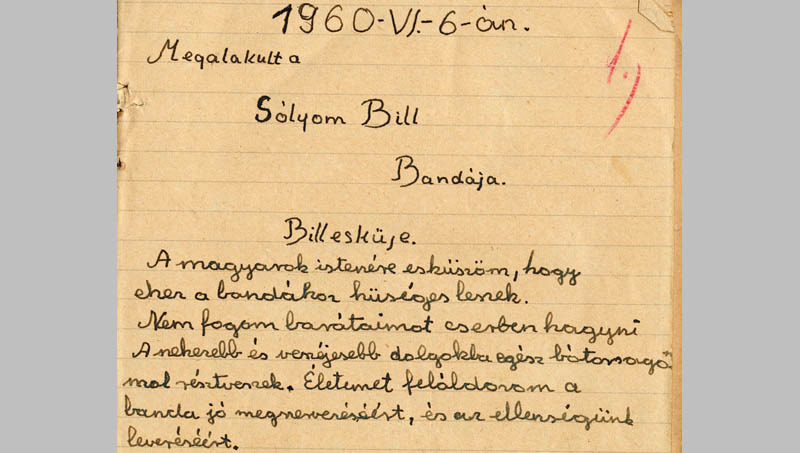 1960-VI.-6-án.
1.)
Megalakult a
Sólyom Bill
Bandája.
Bill esküje.
A magyarok istenére esküszöm, hogy
ehez a bandához hüséges leszek.
Nem fogom barátaimot cserben hagyni
A nehezebb és veszéjesebb dolgokba egész bátorságo
mal résztveszek. Életemet feláldozom a
banda jó megszervezéséért, és az ellenségünk
leveréséért.